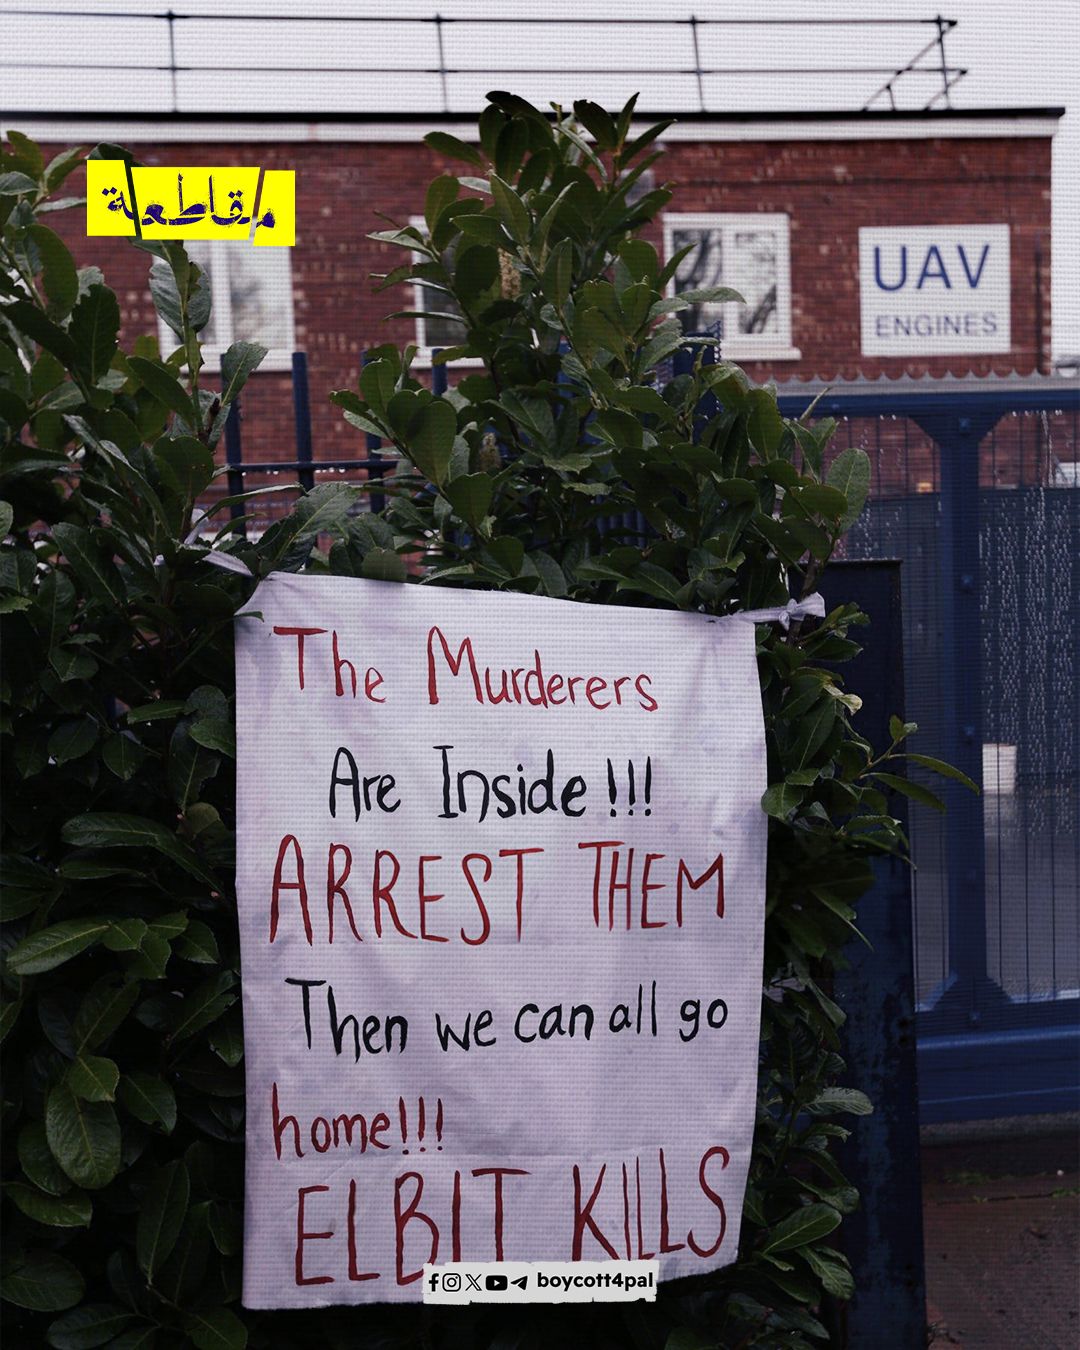 مقاطعة
UAV
ENGINES
The Murderers
Are Inside!!!
ARREST THEM
Then we can all go
home!!!
ELBIT KILLS
boycott4pal